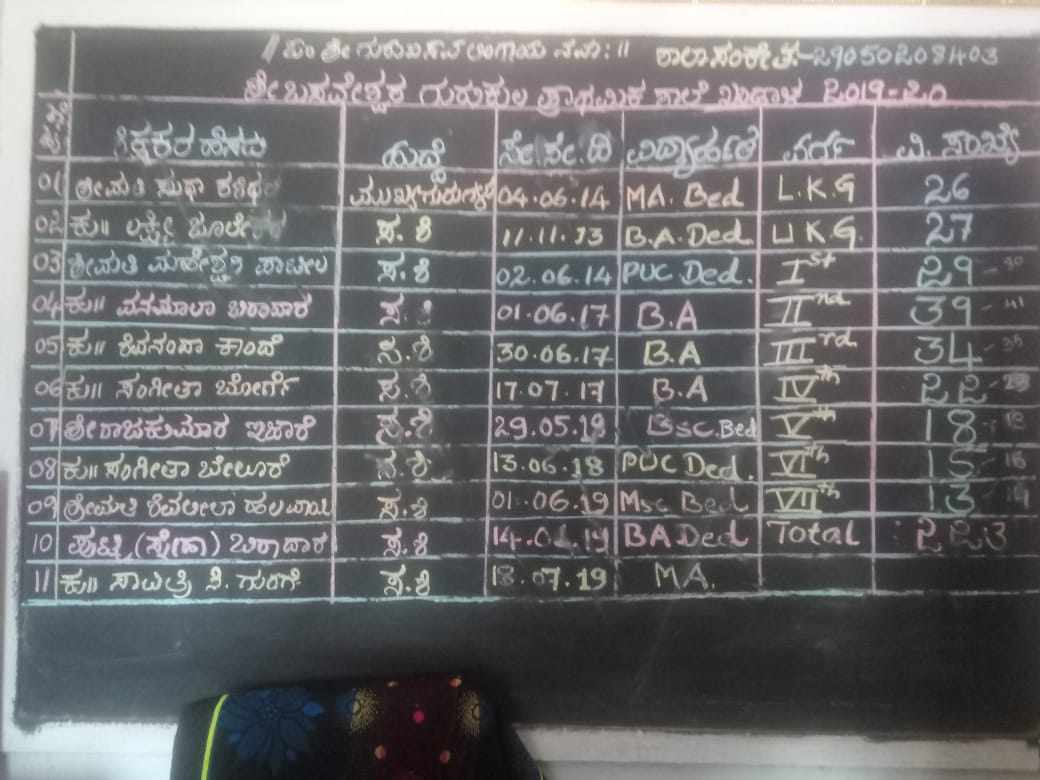 || ಓಂ ಶ್ರೀ ಗುರುಬಸವ ಲಿಂಗಾಯ ನಮಃ || ಶಾಲಾ ಸಂಕೇತ:-29050208403
ಶ್ರೀ ಬಸವೇಶ್ವರ ಗುರುಕುಲ ಪ್ರಾಥಮಿಕ ಶಾಲೆ ಖಂಡಾಳ 2019-20
ಶಿಕ್ಷಕರ ಹೆಸರು ಹುದ್ದೆ ಸೇ.ಸೇ.ದಿ ವಿದ್ಯಾರ್ಹತೆ ವರ್ಗ ವಿ. ಸಂಖ್ಯೆ
01 ಶ್ರೀಮತಿ ಸುಧಾ 04.06.14 MA. Bed L.K.G 26
02 ಕು|| ಲಕ್ಷ್ಮೀ ಸ.ಶಿ 11.11.13 B.A. Ded. U K.G. 27
03 ಶ್ರೀಮತಿ ಮಹೇಶ್ವರಿ ಪಾಟೀಲ ಸ.ಶಿ 02.06.14 PUC Ded. I st ೭9 - 30
04 ಕು|| ವನಮಾಲಾ ಬಿರಾದಾರ ಸ.ಶಿ 01.06.17 B.A II nd 39 - 41
05 ಕು|| ಶಿವನಂದಾ ಕಾಂಬೆ ಸ.ಶಿ 30.06.17 B.A III rd 34 - 35
06 ಕು|| ಸಂಗೀತಾ ಬೋರ್ಗೆ ಸ.ಶಿ 17.07.17 B.A IV th ೭೭
07 ಶ್ರೀ ರಾಜಕುಮಾರ ಇಟಾಕೆ ಸ.ಶಿ 29.05.19 Bsc. Bed V th 18 - 18
08 ಕು|| ಸಂಗೀತಾ ಬೇಲೂರೆ ಸ.ಶಿ 13.06.18 PUC Ded. VI th 15 - 16
09 ಶ್ರೀಮತಿ ಶಿವಲೀಲಾ ಹಲವಾಯಿ ಸ.ಶಿ 01.06.19 Msc Bed VII th 13 - 14
10 ಪುಟ್ಟಿ (ಸ್ನೇಹಾ) ಬಿರಾದಾರ ಸ.ಶಿ BA Ded Total : ೭೭3
11 ಕು|| ಸಾವಿತ್ರಿ ಸಿ. ಗುಂಗೆ ಸ.ಶಿ 18.07.19 MA.